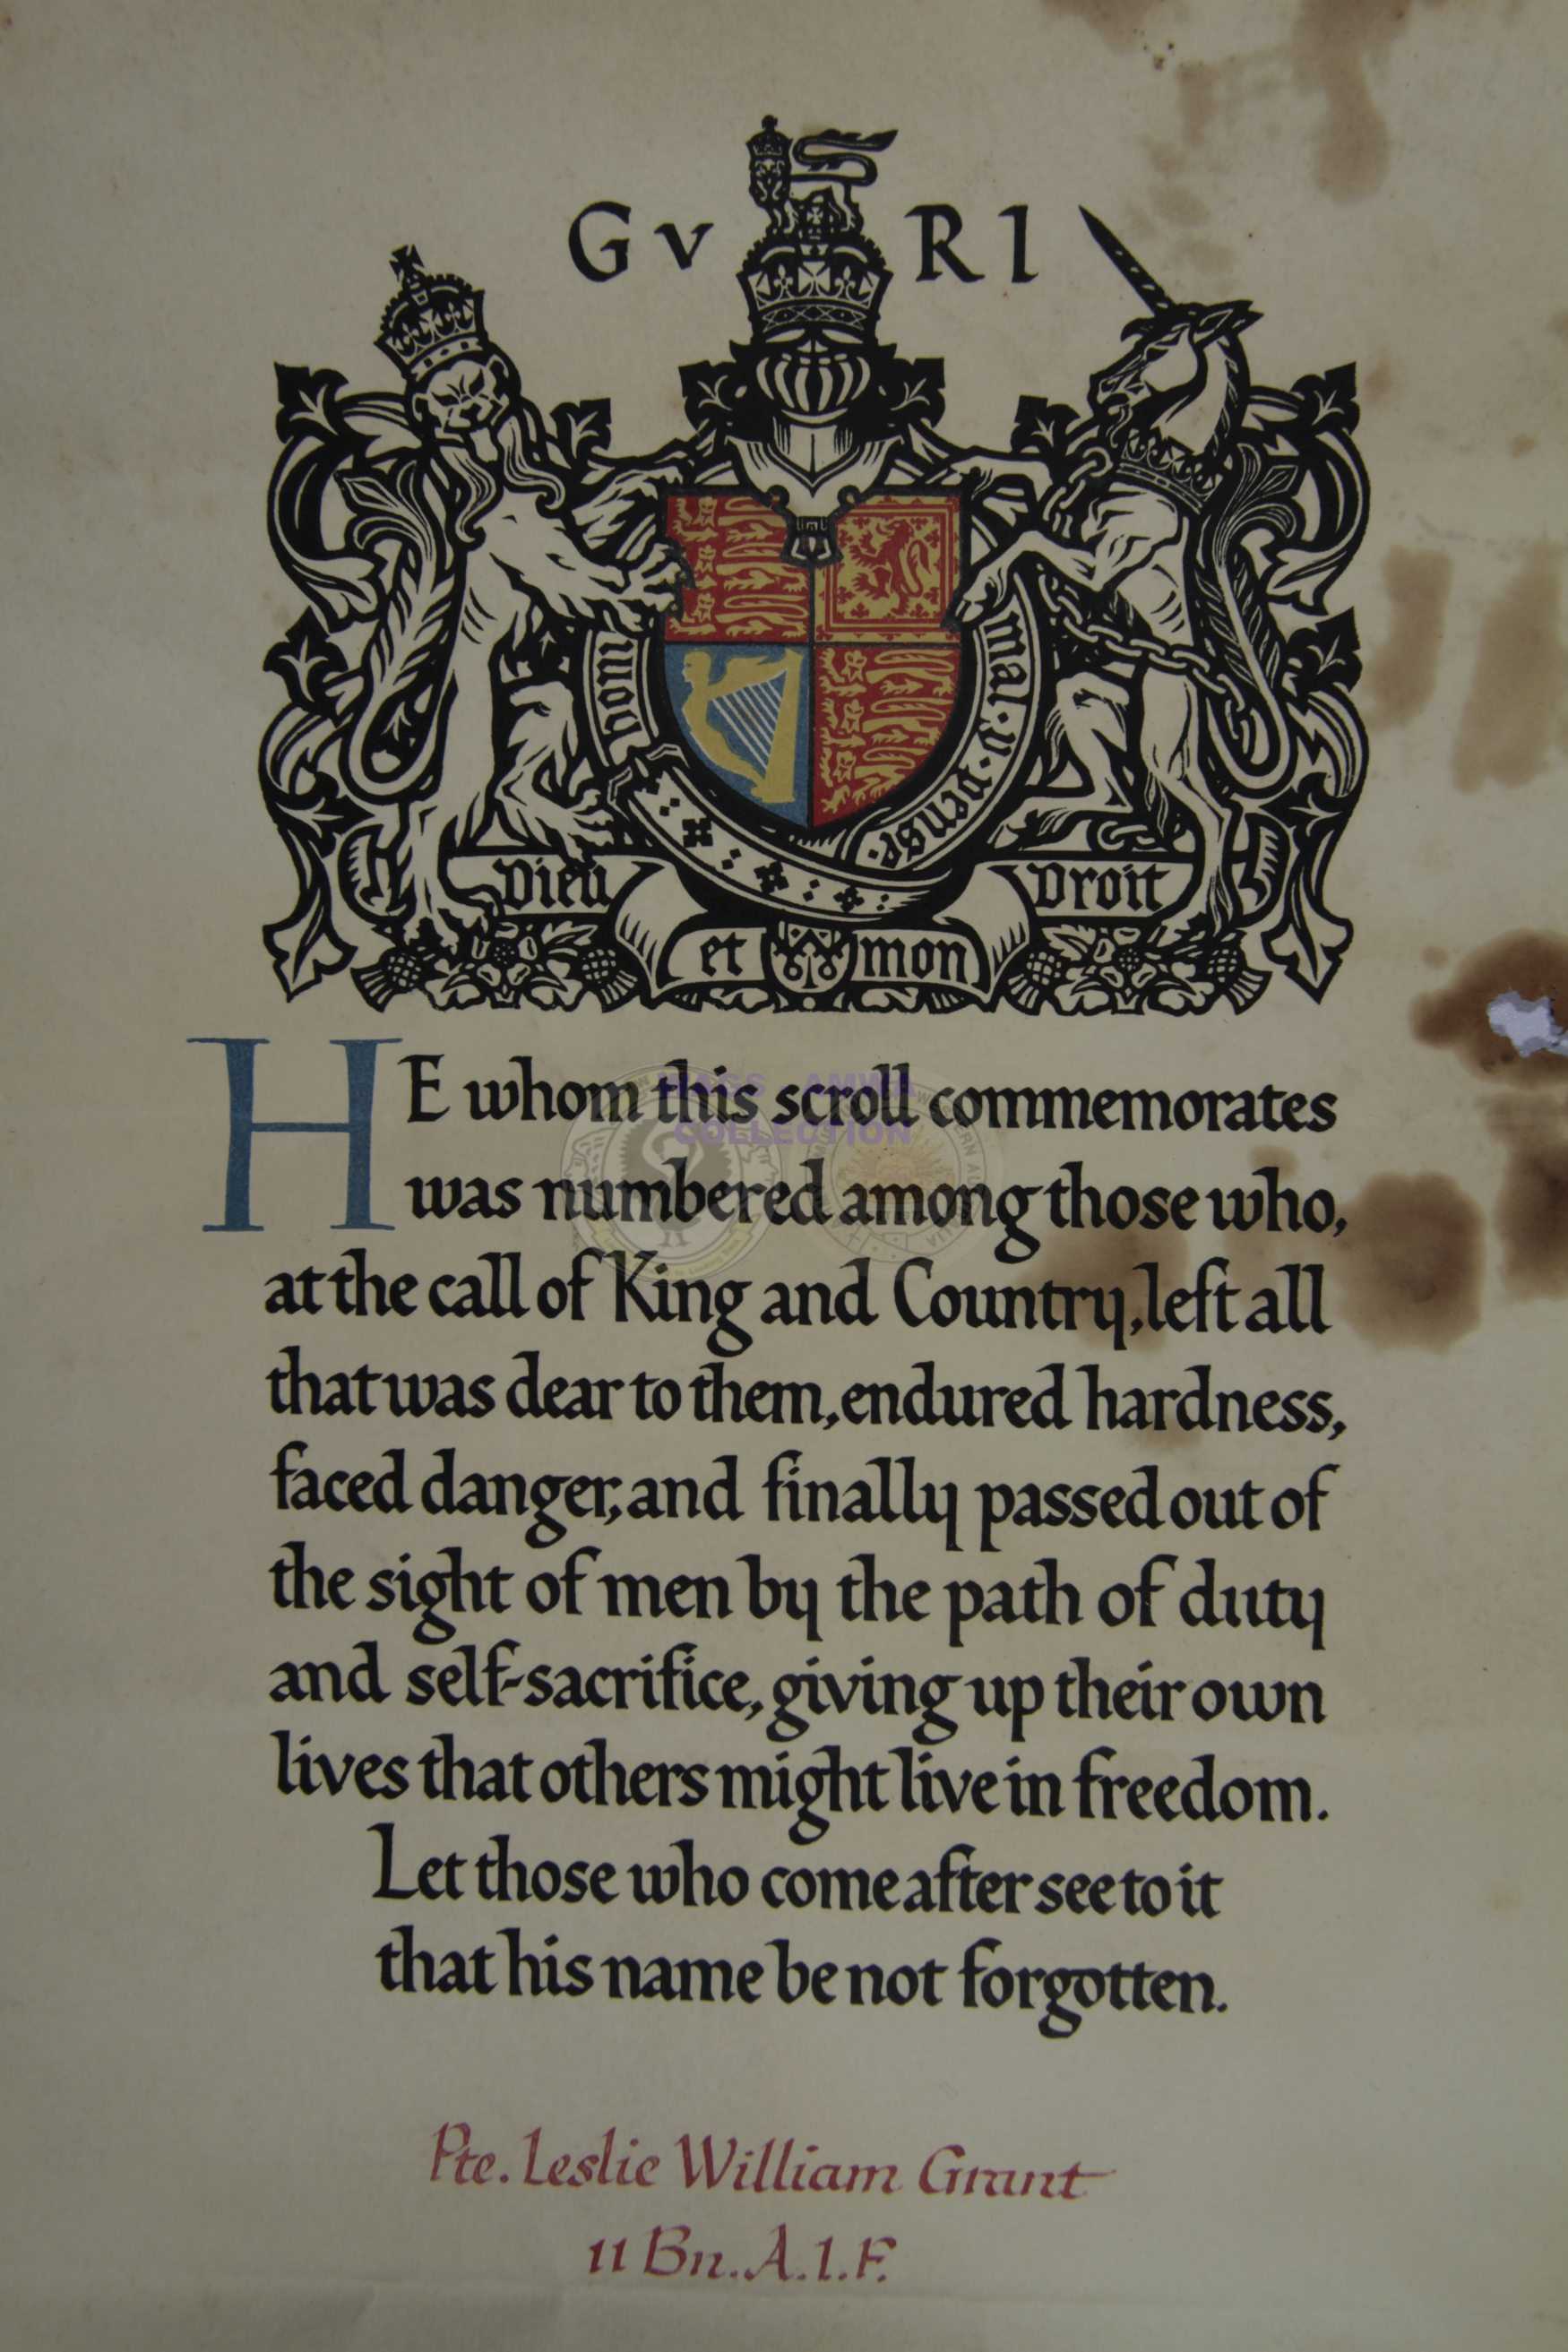 G V R I
honi mal·y·pense·
Dieu et mon Droit
HE whom this scroll commemorates
was numbered among those who,
at the call of King and Country, left all
that was dear to them, endured hardness,
faced danger, and finally passed out of
the sight of men by the path of duty
and self-sacrifice, giving up their own
lives that others might live in freedom.
Let those who come after see to it
that his name be not forgotten.
Pte. Leslie William Grant
11 Bn. A.I.F.
AMWA
COLLECTION